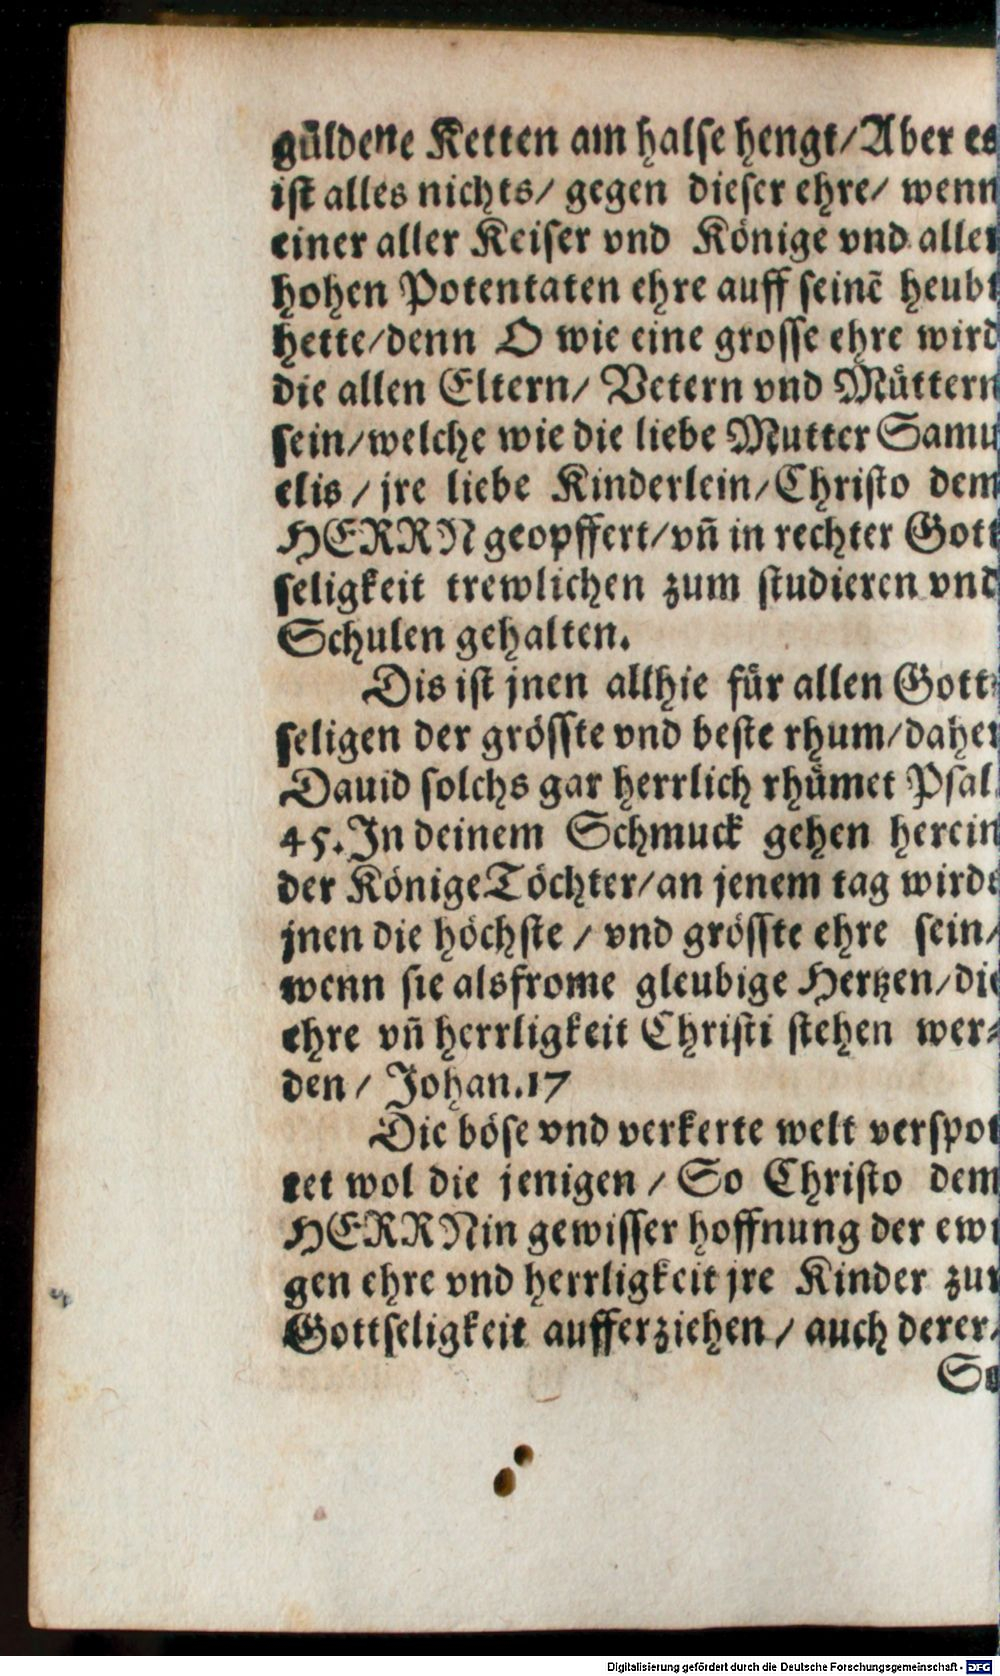 güldene Ketten am halse hengt/Aber es
ist alles nichts/ gegen dieser ehre/ wenn
einer aller Keiser vnd Könige vnd aller
hohen Potentaten ehre auff seinē heubt
hette/denn O wie eine grosse ehre wird
die allen Eltern/ Vetern vnd Müttern
sein/welche wie die liebe Mutter Samu
elis / jre liebe Kinderlein/Christo dem
HERRN geopffert/vn̄ in rechter Gott
seligkeit trewlichen zum studieren vnd
Schulen gehalten.
Dis ist jnen allhie für allen Gott⸗
seligen der grösste vnd beste rhum/daher
Dauid solchs gar herrlich rhümet Psal.
45. In deinem Schmuck gehen herein
der Könige Töchter/an jenem tag wirds
jnen die höchste / vnd grösste ehre sein/
wenn sie als frome gleubige Hertzen/die
ehre vn̄ herrligkeit Christi stehen wer⸗
den / Johan.17
Die böse vnd verkerte welt verspot
tet wol die jenigen / So Christo dem
HERRN in gewisser hoffnung der ewi
gen ehre vnd herrligkeit jre Kinder zur
Gottseligkeit aufferziehen / auch derer/
So
Digitalisierung gefördert durch die Deutsche Forschungsgemeinschaft - DFG